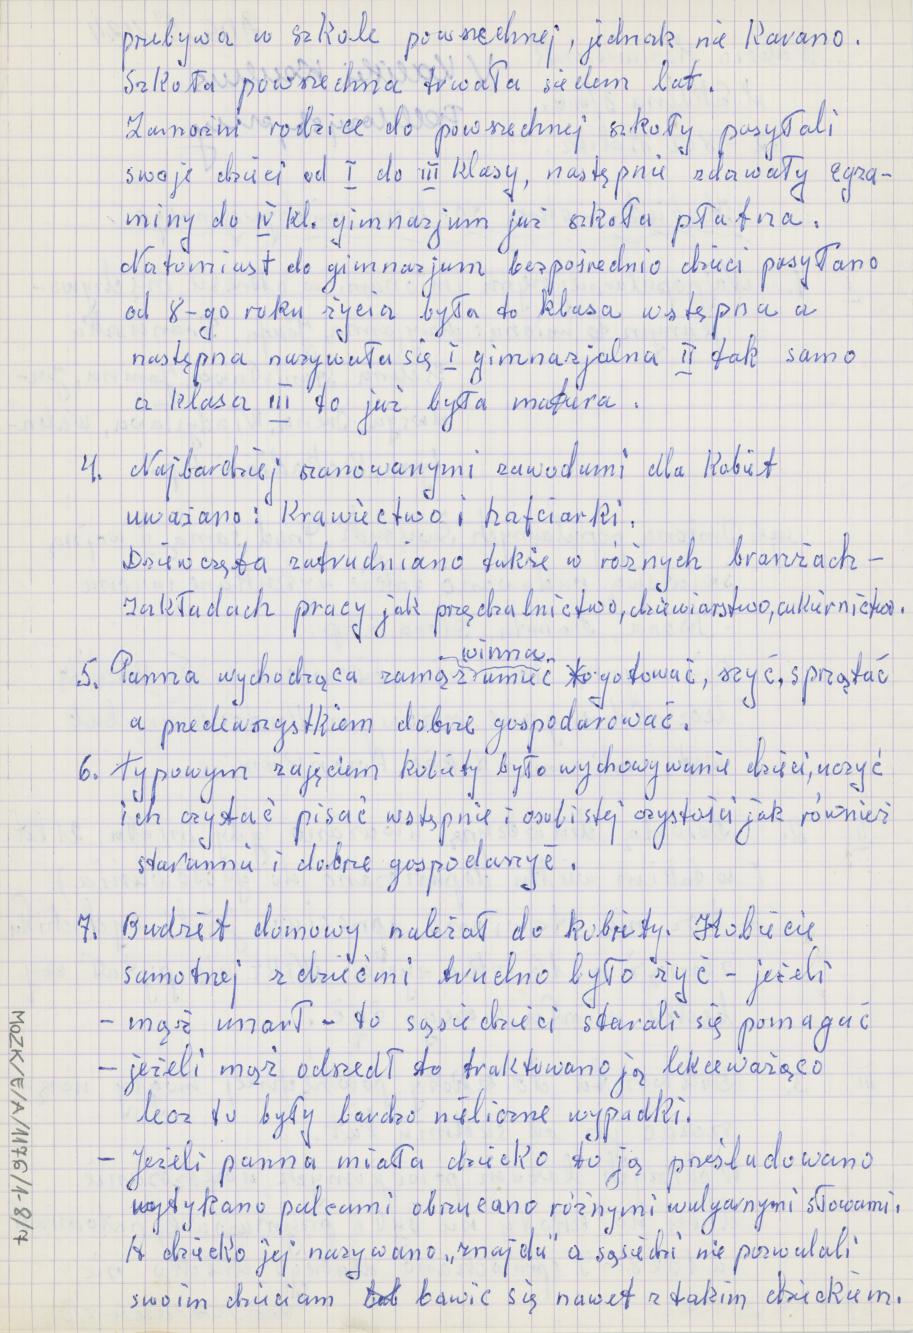 przebywa w szkole powszechnej, jednak nie karano.
Szkoła powszechna trwała siedem lat.
Zamożni rodzice do powszechnej szkoły posyłali
swoje dzieci od I do III klasy, następnie zdawały egza-
miny do IV kl. gimnazjum już szkoła płatna.
Natomiast do gimnazjum bezpośrednio dzieci posyłano
od 8-go roku życia była to klasa wstępna a
następna nazywała się I gimnazjalna II tak samo
a klasa III to już była matura.
4. Najbardziej szanowanymi zawodami dla kobiet
uważano: Krawiectwo i hafciarki.
Dziewczęta zatrudniano także w różnych branżach -
zakładach pracy jak przędzalnictwo, dziewiarstwo, cukiernictwo.
winna
5. Panna wychodząca zamąż umieć gotować, szyć, sprzątać
a przedewszystkiem dobrze gospodarować.
6. Typowym zajęciem kobiety było wychowywanie dzieci, uczyć
ich czytać pisać wstępnie i osobistej czystości jak również
starannie i dobrze gospodarzyć.
7. Budżet domowy należał do kobiety. Kobiecie
samotnej z dziećmi trudno było żyć - jeżeli
- mąż umarł - to sąsiedzieci starali się pomagać
- jeżeli mąż odszedł to traktowano ją lekceważąco
lecz to były bardzo nieliczne wypadki.
- Jeżeli panna miała dziecko to ją prześladowano
wytykano palcami obrzucano różnymi wulgarnymi słowami.
A dziecko jej nazywano „znajda" a sąsiedzi nie pozwalali
swoim dzieciom bawić się nawet z takim dzieckiem.
MOZK/E/A/1176/1-8/7